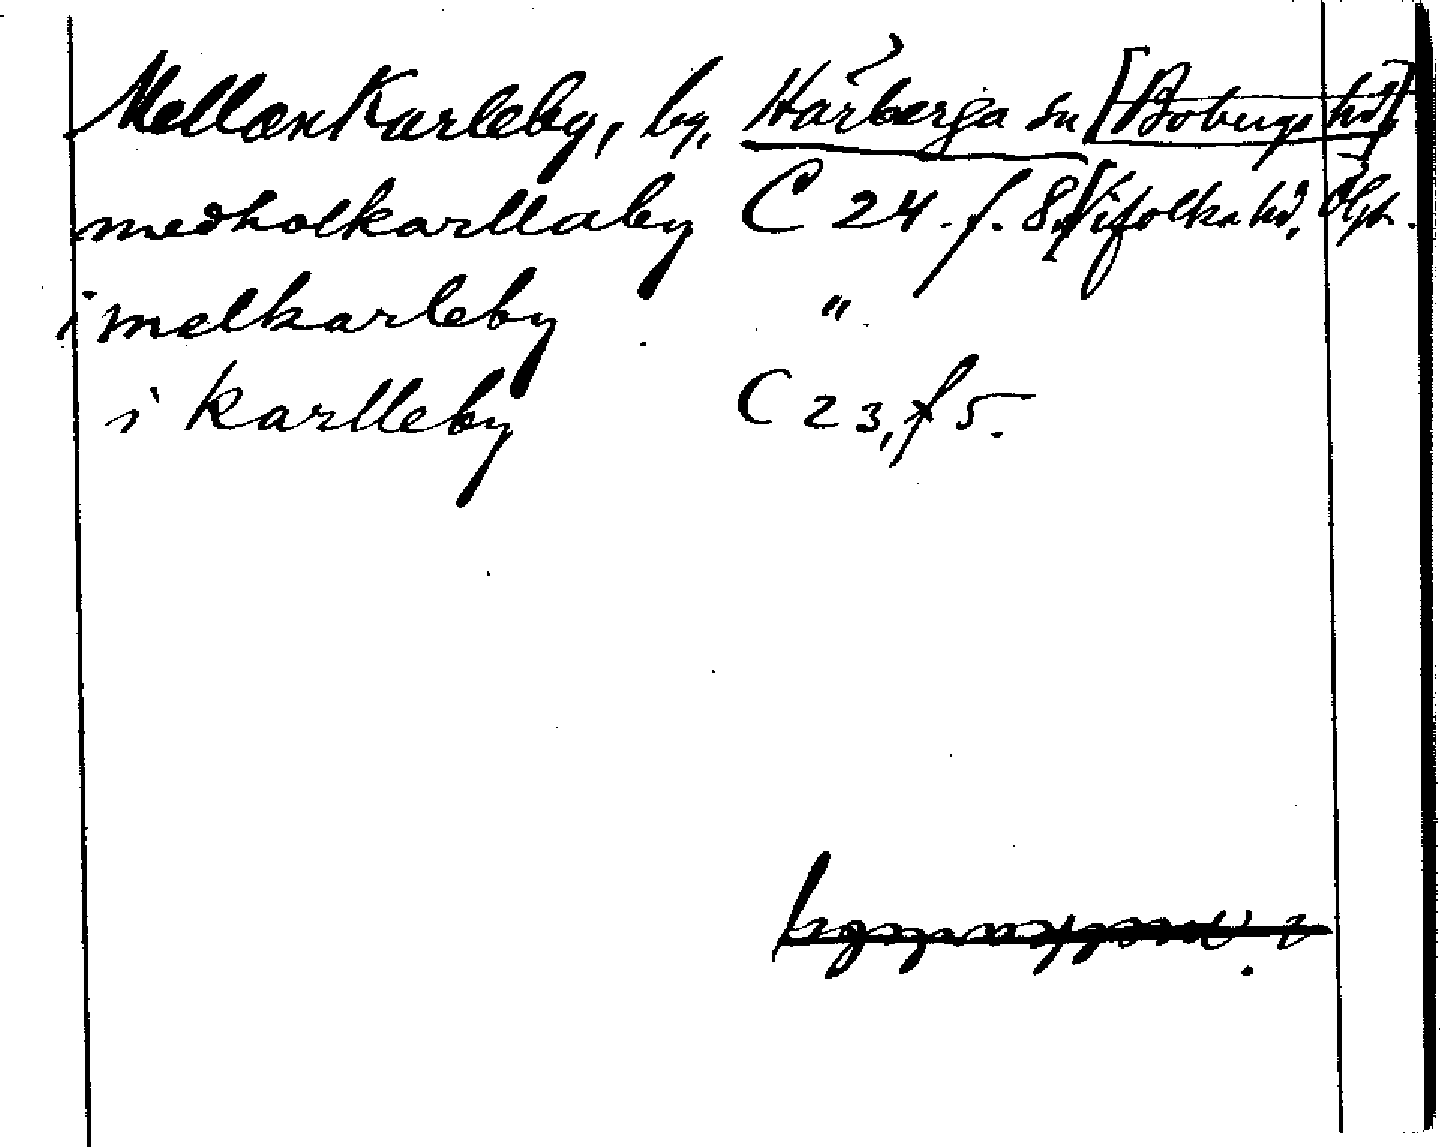 Mellankarleby, by, Härberga sn [Bobergs hd]
medholkarllaby C 24. f. 8. [Vifolka hd, Ögl.]
i melkarleby "
i karlleby C 23, f 5.
i melkarleby